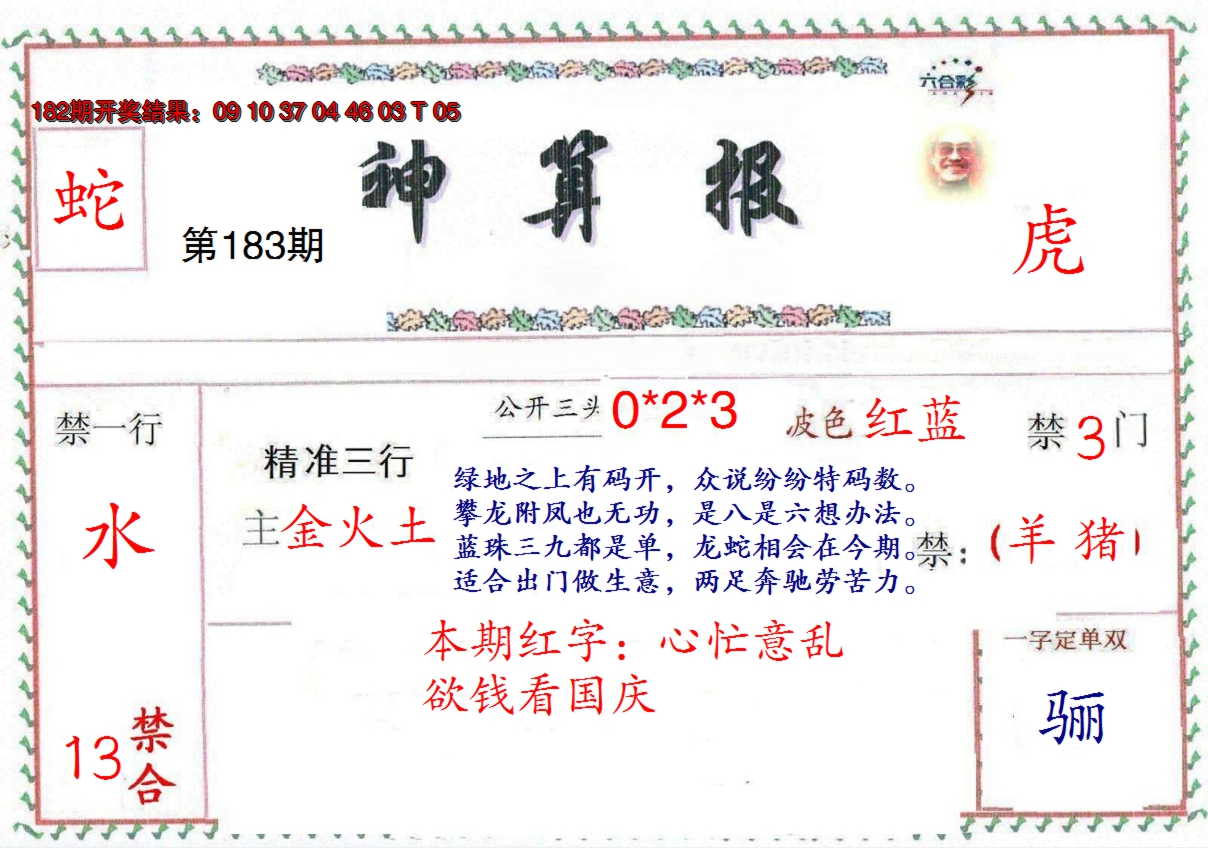 六合彩
182期开奖结果：09 10 37 04 46 03 T 05
神算报
蛇
第183期
虎
禁一行
水
13
禁合
精准三行
主金火土
公开三头 0*2*3
波色红蓝
禁3门
绿地之上有码开，众说纷纷特码数。
攀龙附凤也无功，是八是六想办法。
蓝珠三九都是单，龙蛇相会在今期。
适合出门做生意，两足奔驰劳苦力。
禁：（羊 猪）
本期红字：心忙意乱
欲钱看国庆
一字定单双
骊